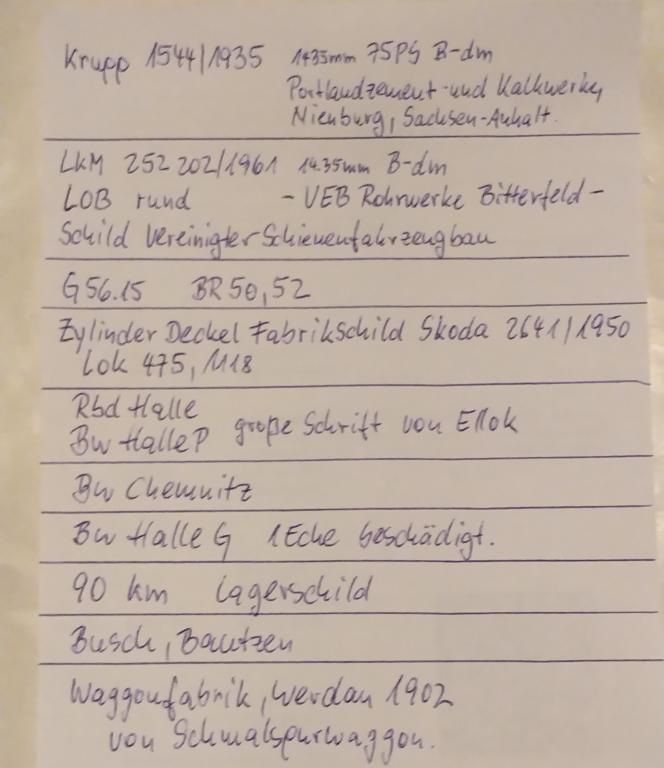 Krupp 1544/1935 1435mm 75PS B-dm
Portlandzement- und Kalkwerke,
Nienburg, Sachsen-Anhalt.
LKM 252 202/1961 1435mm B-dm
LOB rund - VEB Rohrwerke Bitterfeld -
Schild Vereinigter Schienenfahrzeugbau
G56.15 BR 50,52
Zylinder Deckel Fabrikschild Skoda 2641/1950
Lok 475,1118
Rbd Halle
Bw Halle P große Schrift von Ellok
Bw Chemnitz
Bw Halle G 1 Ecke beschädigt.
90 km Lagerschild
Busch, Bautzen
Waggonfabrik, Werdau 1902
von Schmalspurwaggon.